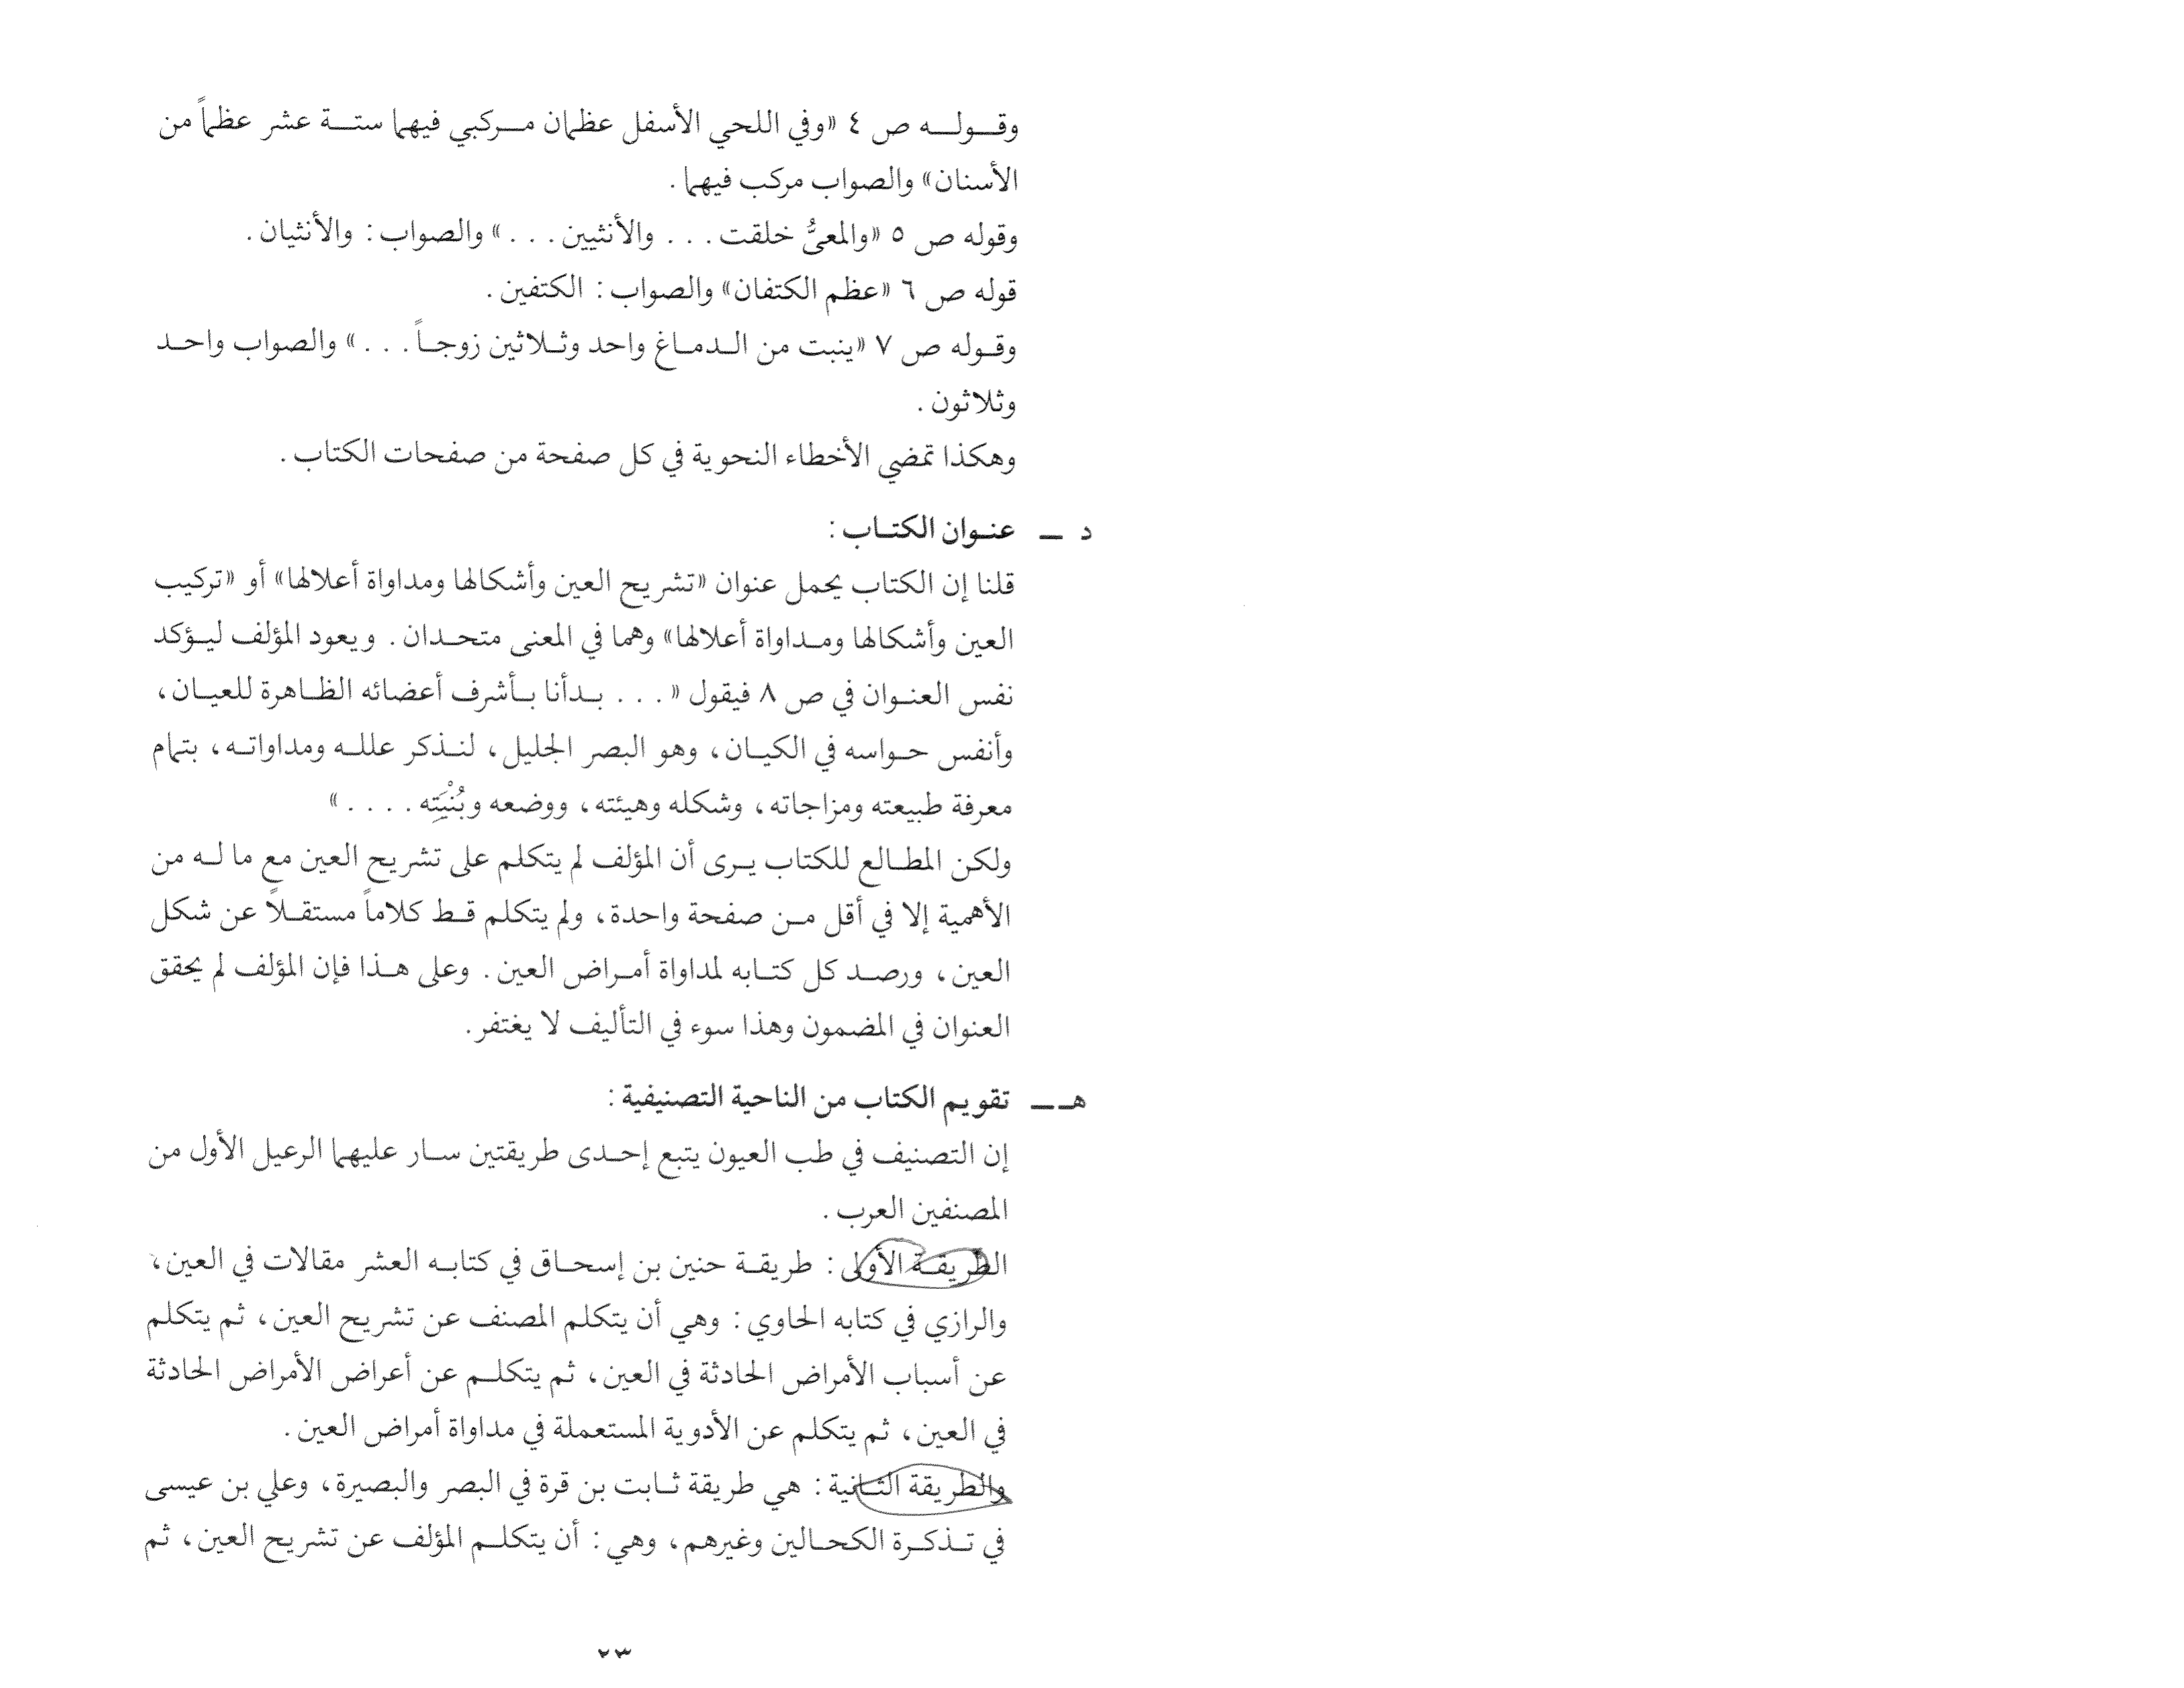 وقوله ص ٤ «وفي اللحي الأسفل عظمان مركبي فيهما ستة عشر عظماً من
الأسنان» والصواب مركب فيهما .
وقوله ص ٥ «والمعىُّ خلقت . . . والأنثيين . . . » والصواب : والأنثيان .
قوله ص ٦ «عظم الكتفان» والصواب : الكتفين .
وقوله ص ٧ «ينبت من الدماغ واحد وثلاثين زوجاً . . . » والصواب واحد
وثلاثون .
وهكذا تمضي الأخطاء النحوية في كل صفحة من صفحات الكتاب .
د — عنوان الكتاب :
قلنا إن الكتاب يحمل عنوان «تشريح العين وأشكالها ومداواة أعلالها» أو «تركيب
العين وأشكالها ومداواة أعلالها» وهما في المعنى متحدان . ويعود المؤلف ليؤكد
نفس العنوان في ص ٨ فيقول « . . . بدأنا بأشرف أعضائه الظاهرة للعيان ،
وأنفس حواسه في الكيان ، وهو البصر الجليل ، لنذكر علله ومداواته ، بتمام
معرفة طبيعته ومزاجاته ، وشكله وهيئته ، ووضعه وبُنْيَتِه . . . . »
ولكن المطالع للكتاب يرى أن المؤلف لم يتكلم على تشريح العين مع ما له من
الأهمية إلا في أقل من صفحة واحدة ، ولم يتكلم قط كلاماً مستقلاً عن شكل
العين ، ورصد كل كتابه لمداواة أمراض العين . وعلى هذا فإن المؤلف لم يحقق
العنوان في المضمون وهذا سوء في التأليف لا يغتفر .
هـ — تقويم الكتاب من الناحية التصنيفية :
إن التصنيف في طب العيون يتبع إحدى طريقتين سار عليهما الرعيل الأول من
المصنفين العرب .
الطريقة الأولى : طريقة حنين بن إسحاق في كتابه العشر مقالات في العين ،
والرازي في كتابه الحاوي : وهي أن يتكلم المصنف عن تشريح العين ، ثم يتكلم
عن أسباب الأمراض الحادثة في العين ، ثم يتكلم عن أعراض الأمراض الحادثة
في العين ، ثم يتكلم عن الأدوية المستعملة في مداواة أمراض العين .
والطريقة الثانية : هي طريقة ثابت بن قرة في البصر والبصيرة ، وعلي بن عيسى
في تذكرة الكحالين وغيرهم ، وهي : أن يتكلم المؤلف عن تشريح العين ، ثم
٢٣